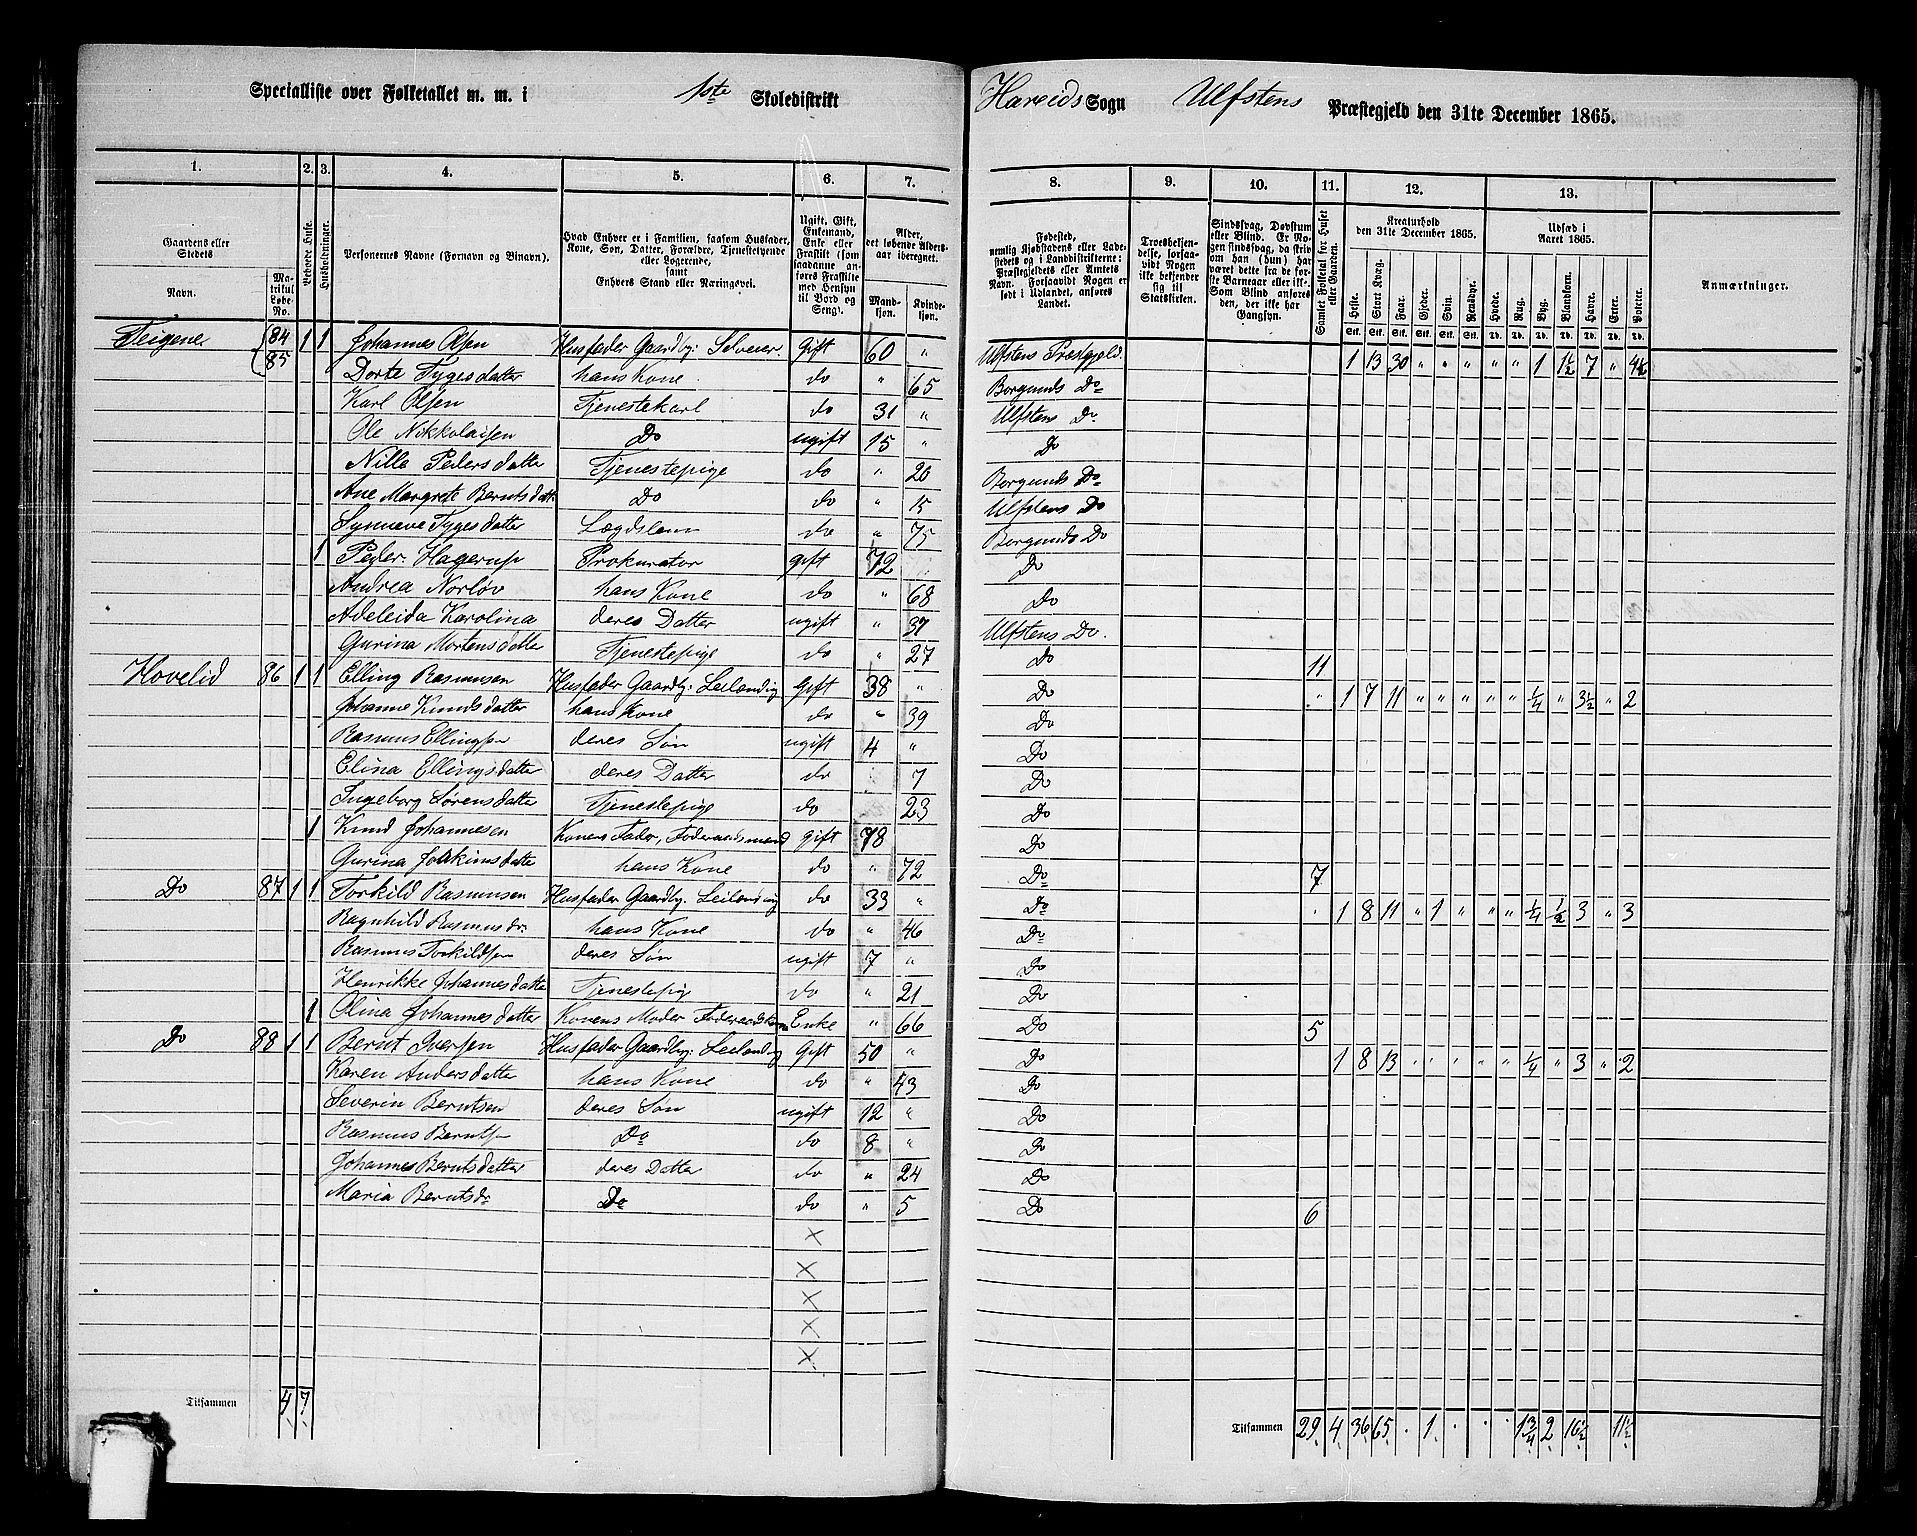 Specialliste over Folketallet m. m. i 1ste Skoledistrikt Hareids Sogn Ulfstens Præstegjeld den 31te December 1865.
1. 2. 3. 4. 5. 6. 7. 8. 9. 10. 11. 12. 13.
Gaardens eller Stedets Navn. Matrikul Løbe-No. Beboede Huse. Husholdninger. Personernes Navne (Fornavn og Binavn). Hvad Enhver er i Familien, saasom Husfader, Kone, Søn, Datter, Forældre, Tjenestetyende eller Logerende, samt Enhvers Stand eller Næringsvei. Ugift, Gift, Enkemand, Enke eller Fraskilt (som saadanne anføres Fraskilte med Hensyn til Bord og Seng). Alder, det løbende Aldersaar iberegnet. Mandkjøn. Kvindekjøn.
Fødested, nemlig Kjøbstadens eller Ladestedets og i Landdistrikterne: Præstegjeldets eller Amtets Navn. Forsaavidt Nogen er født i Udlandet, anføres Landet. Troesbekjendelse, forsaavidt Nogen ikke bekjender sig til Statskirken. Sindssvag, Døvstum eller Blind. Samlet Folketal for Huset eller Gaarden. Kreaturhold den 31te December 1865. Heste. Stort Kvæg. Faar. Gjeder. Svin. Rensdyr. Udsæd i Aaret 1865. Hvede. Rug. Byg. Blandkorn. Havre. Erter. Poteter. Anmærkninger.
Stk. Stk. Stk. Stk. Stk. Stk. Td. Td. Td. Td. Td. Td. Td.
Teigene 84 1 1 Johannes Olsen Husfader Gaardbr: Selveier. Gift 60 " Ulfstens Præstgjeld. 1 13 30 " " " " " 1 1½ 7 " 4½
85 Dorte Tygesdatter hans Kone do " 65 Borgunds Do
Karl Olsen Tjenestekarl do 31 " Ulfstens Do
Ole Nikkolaisen Do ugift 15 " Do
Nille Pedersdatter Tjenestepige do " 20 Borgunds Do
Ane Margrete Berntsdatt Do do " 15 Ulfstens Do
Synneve Tygesdatter Lægdslem do " 75 Borgunds Do
1 Peder Hagerup Prokurator gift 72 Do
Andrea Norløv hans Kone do " 68 Do
Adeleida Karolina deres Datter ugift " 37 Ulfstens Do.
Gurina Mortensdatter Tjenestepige do " 27 Do 11
Hovelid 86 1 1 Elling Rasmusen Husfader Gaardbr: Leilending Gift 38 " Do " 1 7 11 " " " " " ¼ " 3½ " 2
Johanne Knudsdatter hans Kone do " 39 Do
Rasmus Ellingsen deres Søn ugift 4 " Do
Elina Ellingsdatter deres Datter do 7 Do
Ingeborg Sørensdatter Tjenestepige do 23 Do
1 Knud Johannesen Konens Fader, Føderaadsmand gift 78 Do
Gurina Joakimsdatter hans Kone do " 72 Do 7
Do 87 1 1 Torkild Rasmusen Husfader Gaardbr: Leilending do 33 " Do 1 8 11 " 1 " " " ¼ ½ 3 " 3
Ragnhild Rasmusdr. hans Kone do " 46 Do
Rasmus Torkildsen deres Søn ugift 7 " Do
Henrikke Johannesdatter Tjenestepig do " 21 Do
1 Olina Johannesdatter Konens Moder Føderaadskone Enke " 66 Do 5
Do 88 1 1 Bernt Iversen Husfader Gaardbr: Leilending Gift 50 " Do 1 8 13 " " " " " ¼ " 3 " 2
Karen Andersdatter hans Kone do " 43 Do
Severin Berntsen deres Søn ugift 12 " Do
Rasmus Berntsen Do do 8 " Do
Johannes Berntsdatter deres Datter do " 24 Do
Maria Berntsdr Do do " 5 Do 6
×
×
×
×
×
Tilsammen 4 7
Tilsammen 29 4 36 65 . 1 . . . 1¾ 2 16½ 11½